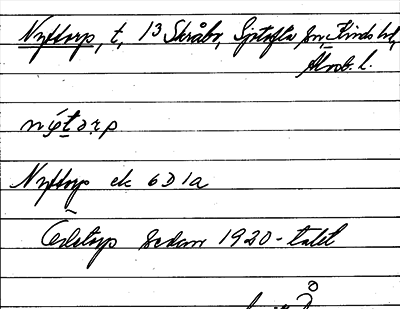 Nyttorp, t, 13 Skråbo, Sjötofta sn, Kinds hd,
Älvsb. l.
nýtơrp
Nyttorp ek 6D1a
Ödetorp sedan 1920-talet